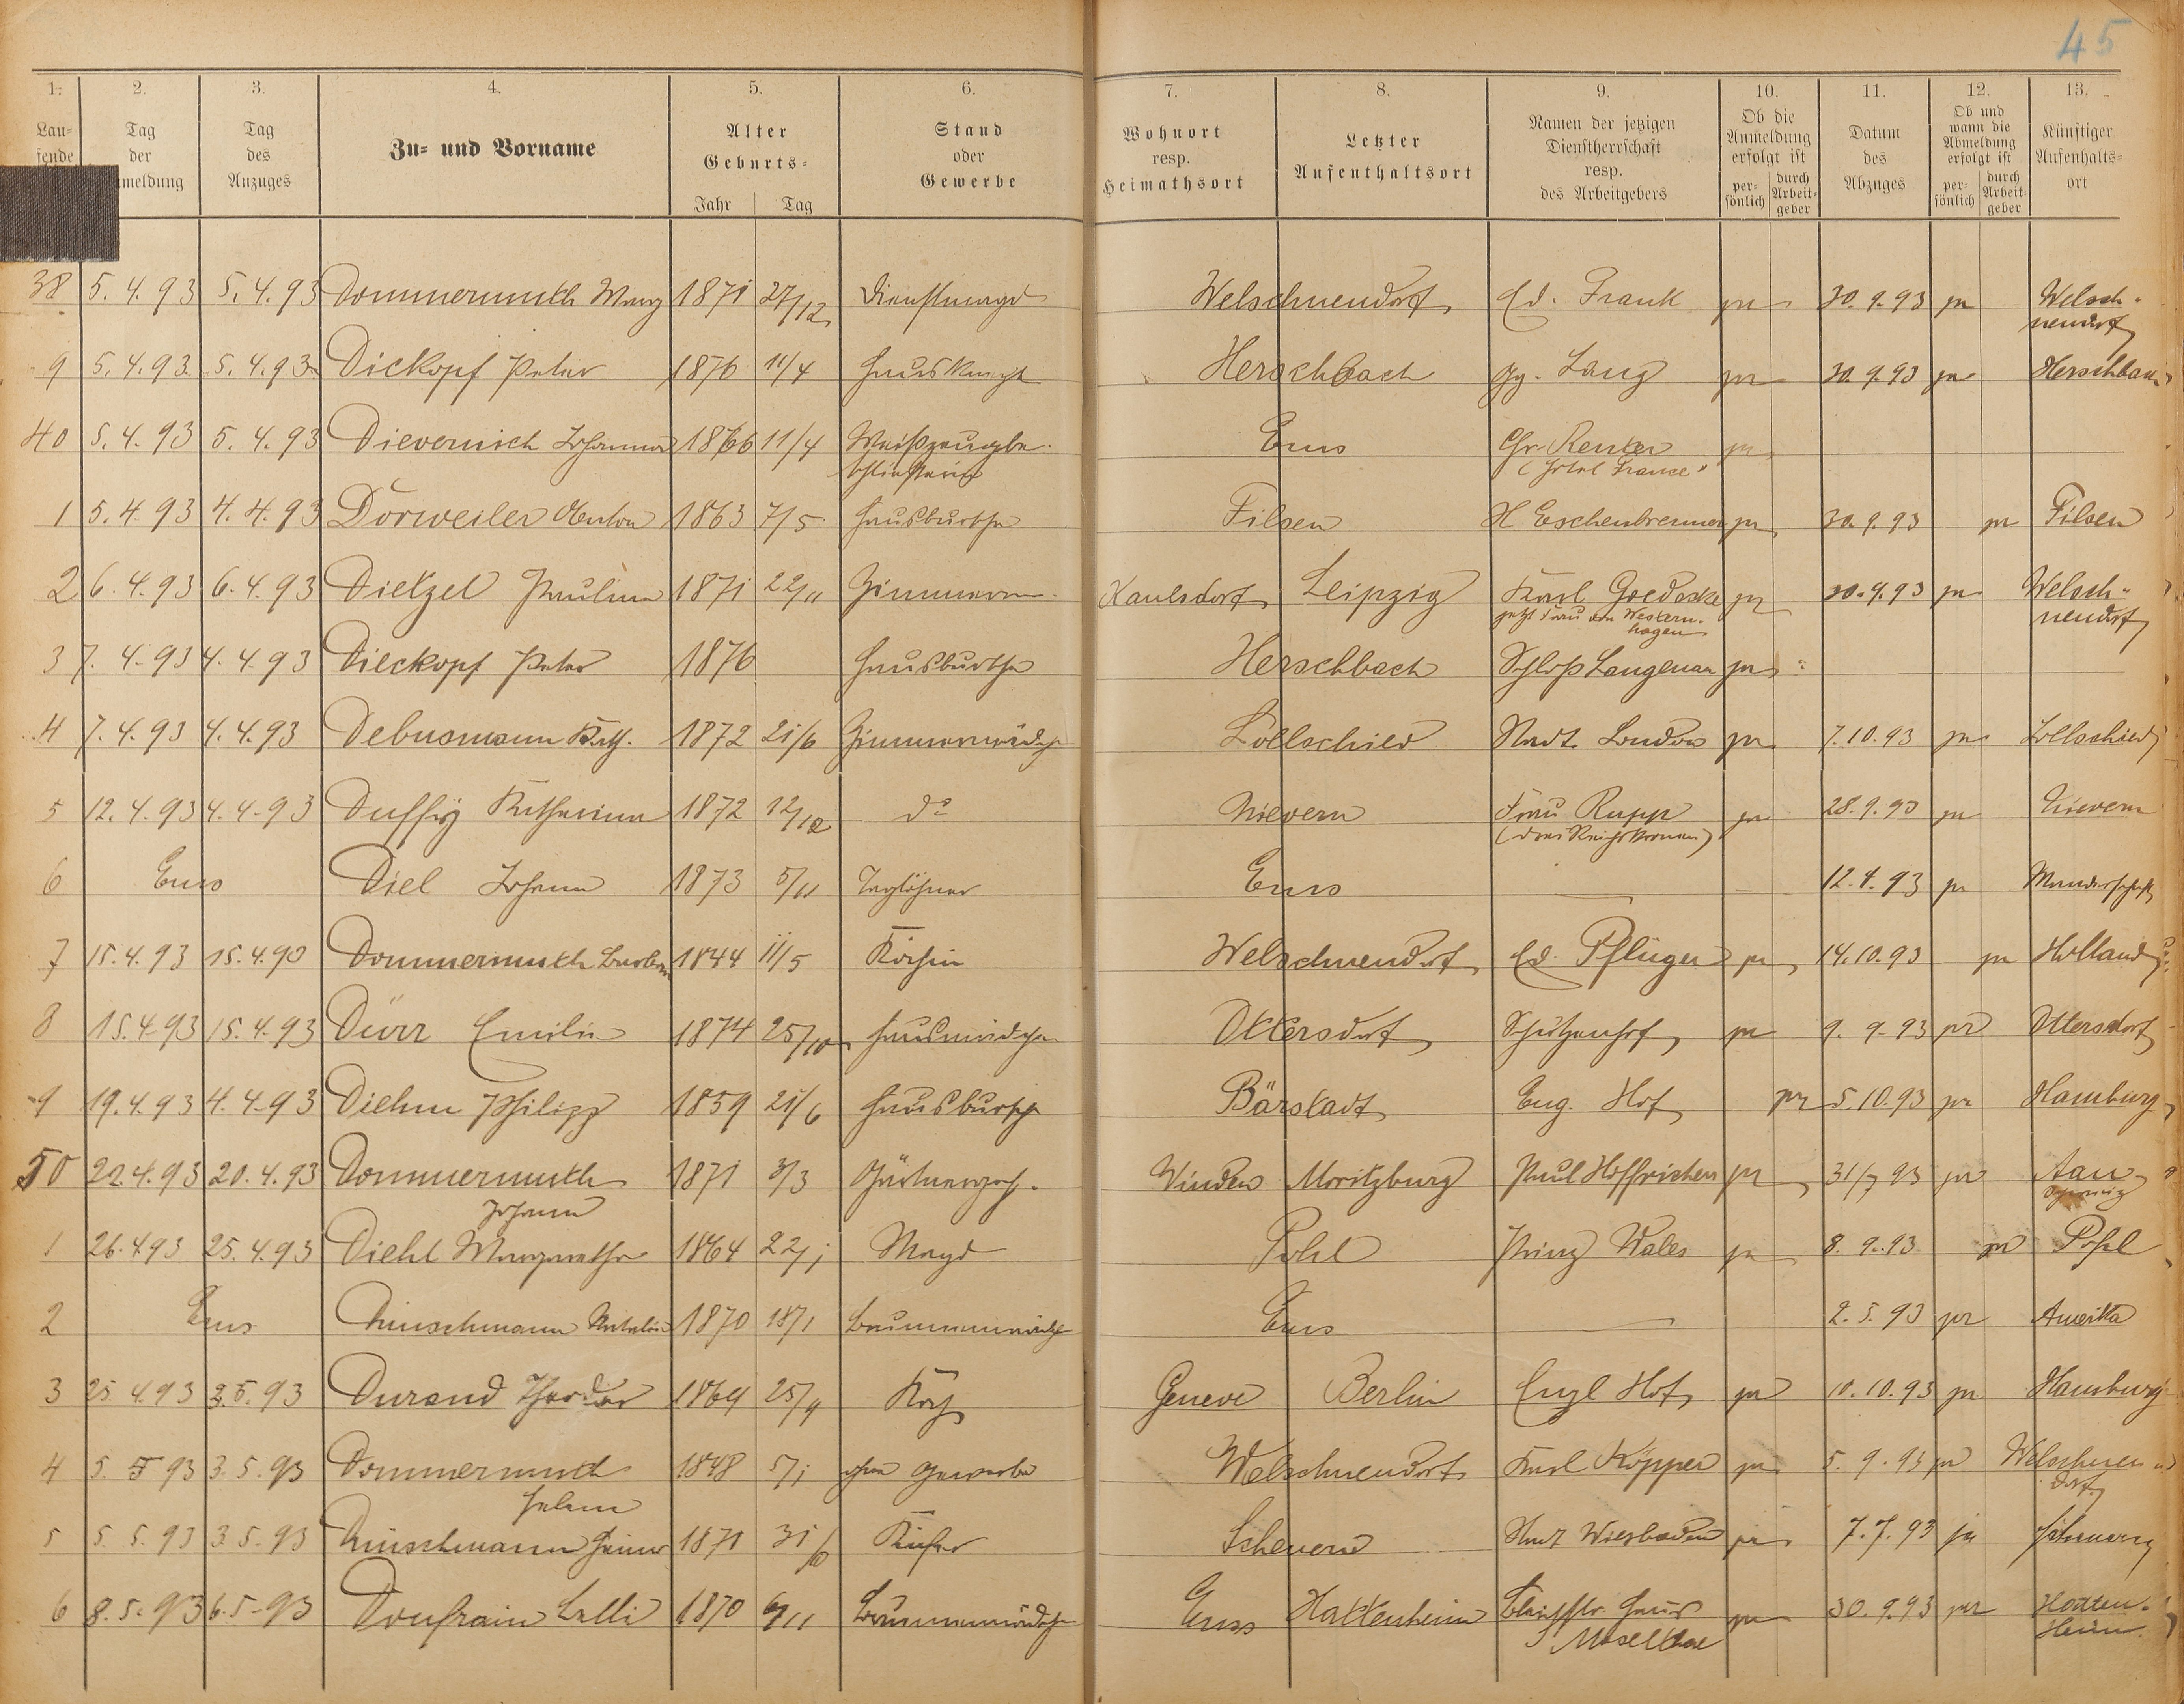 45
1. 2. 3. 4. 5. 6. 7. 8. 9. 10. 11. 12. 13.
Lau=
fende
Tag
der
meldung
Tag
des
Anzuges
Zu= und Vorname
Alter
Geburts=
Jahr Tag
Stand
oder
Gewerbe
Wohnort
resp.
Heimathsort
Letzter
Aufenthaltsort
Namen der jetzigen
Dienstherrschaft
resp.
des Arbeitgebers
Ob die
Anmeldung
erfolgt ist
per=
sönlich
durch
Arbeit=
geber
Datum
des
Abzuges
Ob und
wann die
Abmeldung
erfolgt ist
per=
sönlich
durch
Arbeit=
geber
Künftiger
Aufenhalts=
ort
38 5. 4. 93 5. 4. 93 Dommermuth 1871 27/12 Dienstmagd Welschneudorf Ed. Frank 30. 9. 93 Welsch-
neudorf
9 5. 4. 93 5. 4. 93 Dickopf Peter 1876 11/4 Hausknecht Herschbach Gg. Lang 30. 9. 93 Herschbach
40 5. 4. 93 5. 4. 93 Dievernich Johanna 1866 11/4 Weißzeugbe-
schließerin Ems Chr. Reuter
(Hotel France"
1 5. 4. 93 4. 4. 93 Dorweiler Anton 1863 7/5 Hausbursche Filsen H Eschenbrenner 30. 9. 93 Filsen
2 6. 4. 93 6. 4. 93 Dietzel Paulina 1871 22/11 Kaulsdorf Leipzig Karl Goedecke 30. 9. 93 Welsch-
jetzt Frau von Western-
hagen neudorf
3 7. 4. 93 4. 4. 93 Dieckopf Peter 1876 Hausbursche Herschbach Schloß Langenau
4 7. 4. 93 4. 4. 93 Debusmann Kath. 1872 21/6 Zimmermädch Lollschied Stadt London 7. 10. 93 Lollschied
5 12. 4. 93 4. 4. 93 Duffy Katharina 1872 12/12 do Nievern Frau Rupp 28. 9. 93 Nievern
6 Ems Diel Johann 1873 5/11 Taglöhner Ems 12. 4. 93 Wanderschaft
7 15. 4. 93 15. 4. 93 Dommermuth Barbara 1844 11/5 Köchin Welschneudorf Ed. Pflüger 14. 10. 93 Holland
8 15. 4. 93 15. 4. 93 Dürr Emilie 1874 25/10 Hausmädchen Ottersdorf Schützenhof 9. 9. 93 Ottersdorf
9 19. 4. 93 4. 4. 93 Diehm Philipp 1859 21/6 Hausbursche Bärstadt Eng. Hof 5. 10. 93 Hamburg
50 22. 4. 93 20. 4. 93 Dommermuth 1871 3/3 Gärtnergeh. Winden Moritzburg Paul Hoffrichter 31/7 93 Aau
Johann Schweiz
1 26. 4 93 25. 4. 93 Diehl Margarethe 1864 22/1 Magd Pohl Prinz Wales 8. 9. 93 Pohl
2 Ems Hinschmann Natalie 1870 18/1 Brunnenmädch Ems 2. 5. 93 Amerika
3 25 4. 93 3. 5. 93 Durand Theodor 1869 25/9 Koch Geneve Berlin Engl Hof 10. 10. 93 Hamburg
4 5. 5 93 3. 5. 93 Dommermuth 1848 5/1 ohne Gewerbe Welschneudorf Karl Köpper 5. 9. 93 Welschneu
Helene dorf
5 5. 5. 93 3. 5. 93 Hinschmann 1871 Küfer Scheuern Stadt Wiesbaden 7. 7. 93
6 8. 5. 93 6. 5. 93 Doufrain Lilli 1870 Brunnenmädch Ems Hattenheim 30. 9. 93 Hatten-
Moselthal Heim